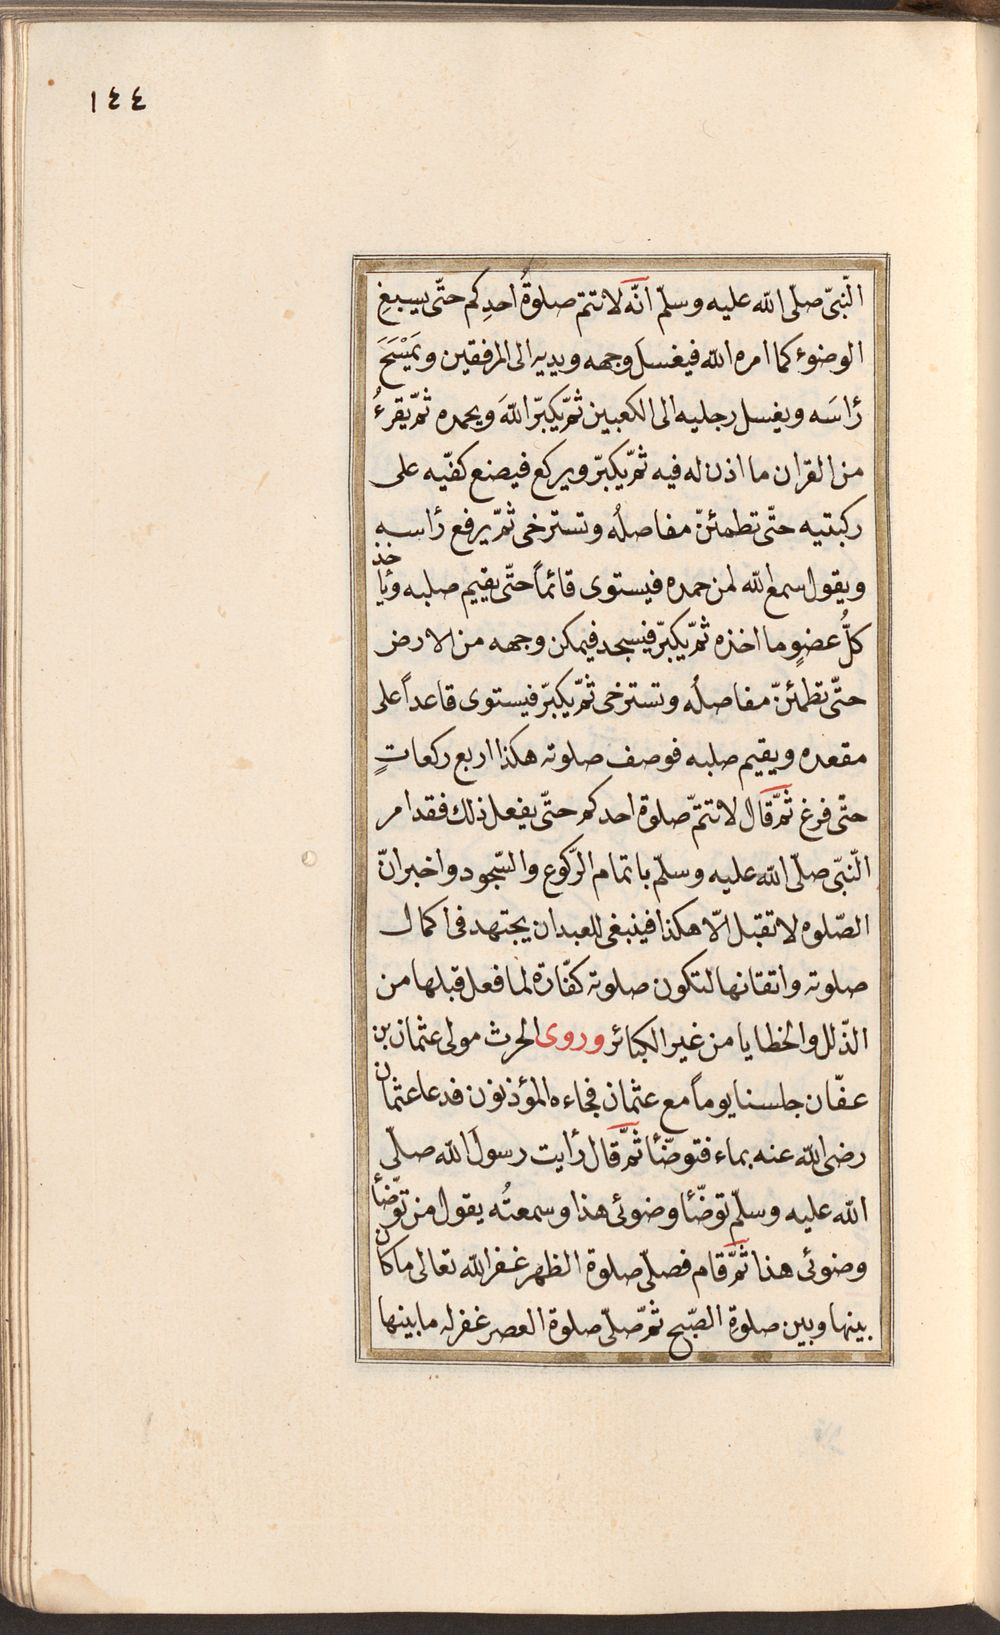 ١٤٤
النّبىّ صلّى الله عليه وسلّم انّه لا تتمّ صلوةُ احدِكم حتّى يسبغ
الوضوء كما امره الله فيغسلَ وجهه ويديه الى المرفقين ويَمْسَحَ
رأسَه ويغسل رجليه الى الكعبين ثمّ يكبّر اللهَ ويحمده ثمّ يقرءُ
من القران ما اذن له فيه ثمّ يكبّر ويركع فيصنع كفّيه على
ركبتيه حتّى تطمئنّ مفاصلُه وتسترخى ثمّ يرفع رأسه
ويقول سمع الله لمن حمده فيستوى قائماً حتّى يقيم صلبه ويأخذ
كلُّ عضوٍ ما اخذه ثمّ يكبّر فيسجد فيمكن وجهه من الارض
حتّى تطمئنّ مفاصلُه وتسترخى ثمّ يكبّر فيستوى قاعداً على
مقعده ويقيم صلبه فوصف صلوته هكذا اربع ركعاتٍ
حتّى فرغ ثمّ قال لا تتمّ صلوة احدكم حتّى يفعل ذلك فقد امر
النّبىّ صلّى الله عليه وسلّم باتمام الرّكوع والسّجود واخبر انّ
الصّلوه لا تقبل الّا هكذا فينبغى للعبد ان يجتهد فى اكمال
صلوته واتقانها لتكون صلوته كفّارة لما فعل قبلها من
الذّلل والخطايا من غير الكبائر وروى الحرث مولى عثمان بن
عفّان جلسنا يوماً مع عثمان فجاءه المؤذنون فدعا عثمان
رضى الله عنه بماء فتوضّأ ثمّ قال رأيت رسول الله صلّى
الله عليه وسلّم توضّأ وضوئى هذا وسمعتُه يقول من توضّأ
وضوئى هذا ثمّ قام فصلّى صلوة الظهر غفر الله تعالى ما كان
بينها وبين صلوة الصّبح ثمّ صلّى صلوة العصر غفر له ما بينها